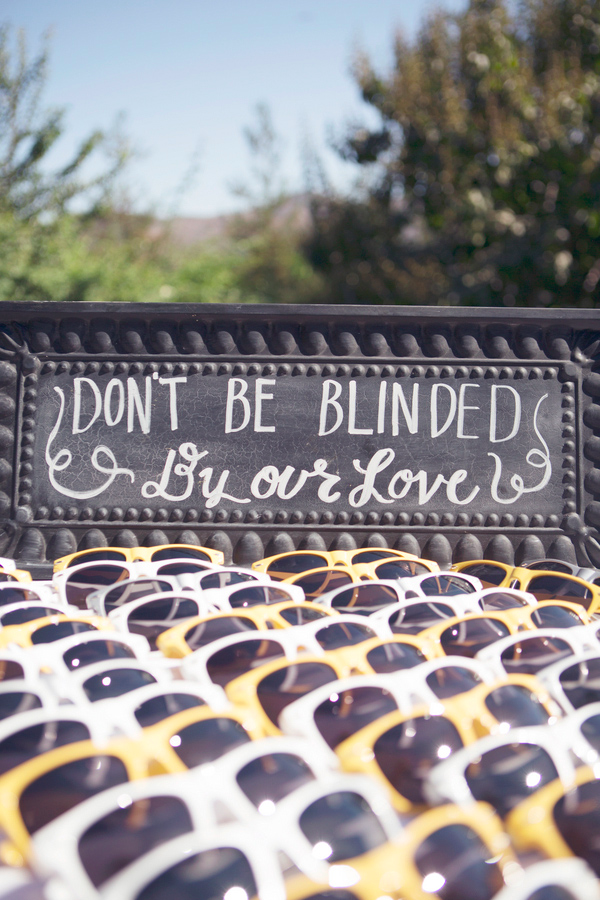 DON'T BE BLINDED
By our Love